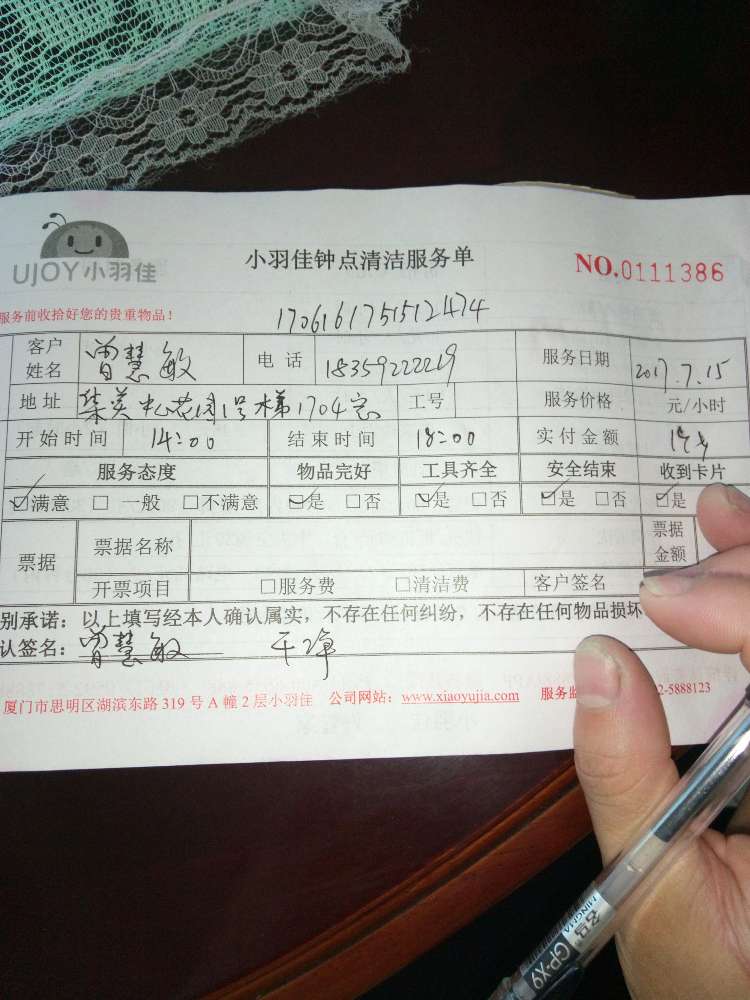 UJOY小羽佳
小羽佳钟点清洁服务单
NO.0111386
服务前收拾好您的贵重物品！
170616175151 2474
客户姓名 曾慧敏 电话 18359222219 服务日期 2017.7.15
地址 中心花园1号 梯1704室 工号 服务价格 元/小时
开始时间 14:00 结束时间 18:00 实付金额
服务态度 物品完好 工具齐全 安全结束 收到卡片
☑满意 □一般 □不满意 ☑是 □否 ☑是 □否 ☑是 □否 ☑是
票据 票据名称 票据金额
开票项目 □服务费 □清洁费 客户签名
别承诺：以上填写经本人确认属实，不存在任何纠纷，不存在任何物品损坏
认签名：曾慧敏 干净
厦门市思明区湖滨东路 319 号 A 幢 2 层小羽佳 公司网站：www.xiaoyujia.com 服务监 2-5888123
名马 MINGMA GP-X9